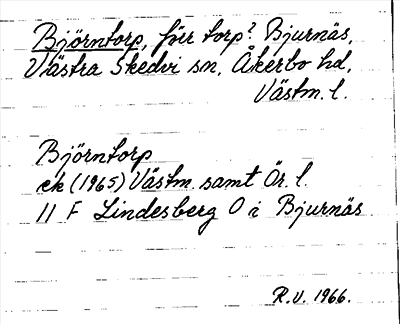 Björntorp, förr torp? Bjurnäs,
Västra Skedvi sn, Åkerbo hd,
Västm. l.
Björntorp
ek (1965) Västm. samt Ör. l.
11 F Lindesberg O i Bjurnäs
R.V. 1966.